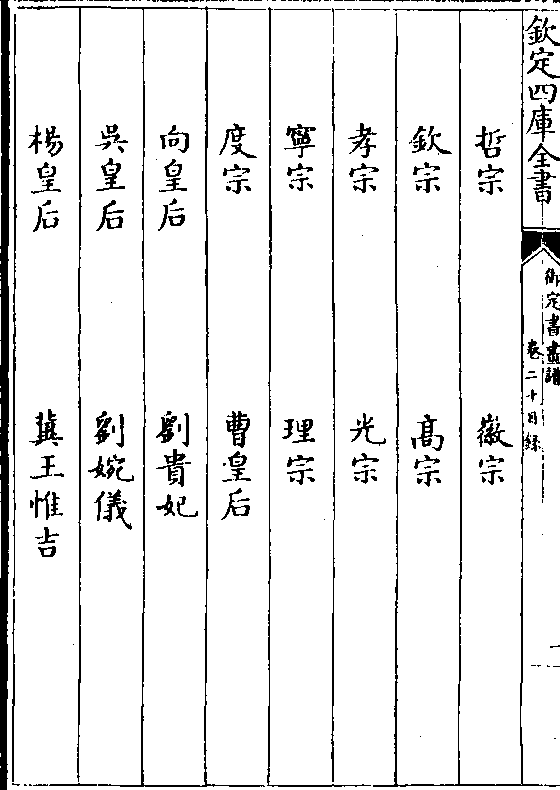 欽定四庫全書
御定書畫譜
卷二十目錄
一
哲宗　徽宗
欽宗　高宗
孝宗　光宗
寧宗　理宗
度宗　曹皇后
向皇后　劉貴妃
吳皇后　劉婉儀
楊皇后　冀王惟吉